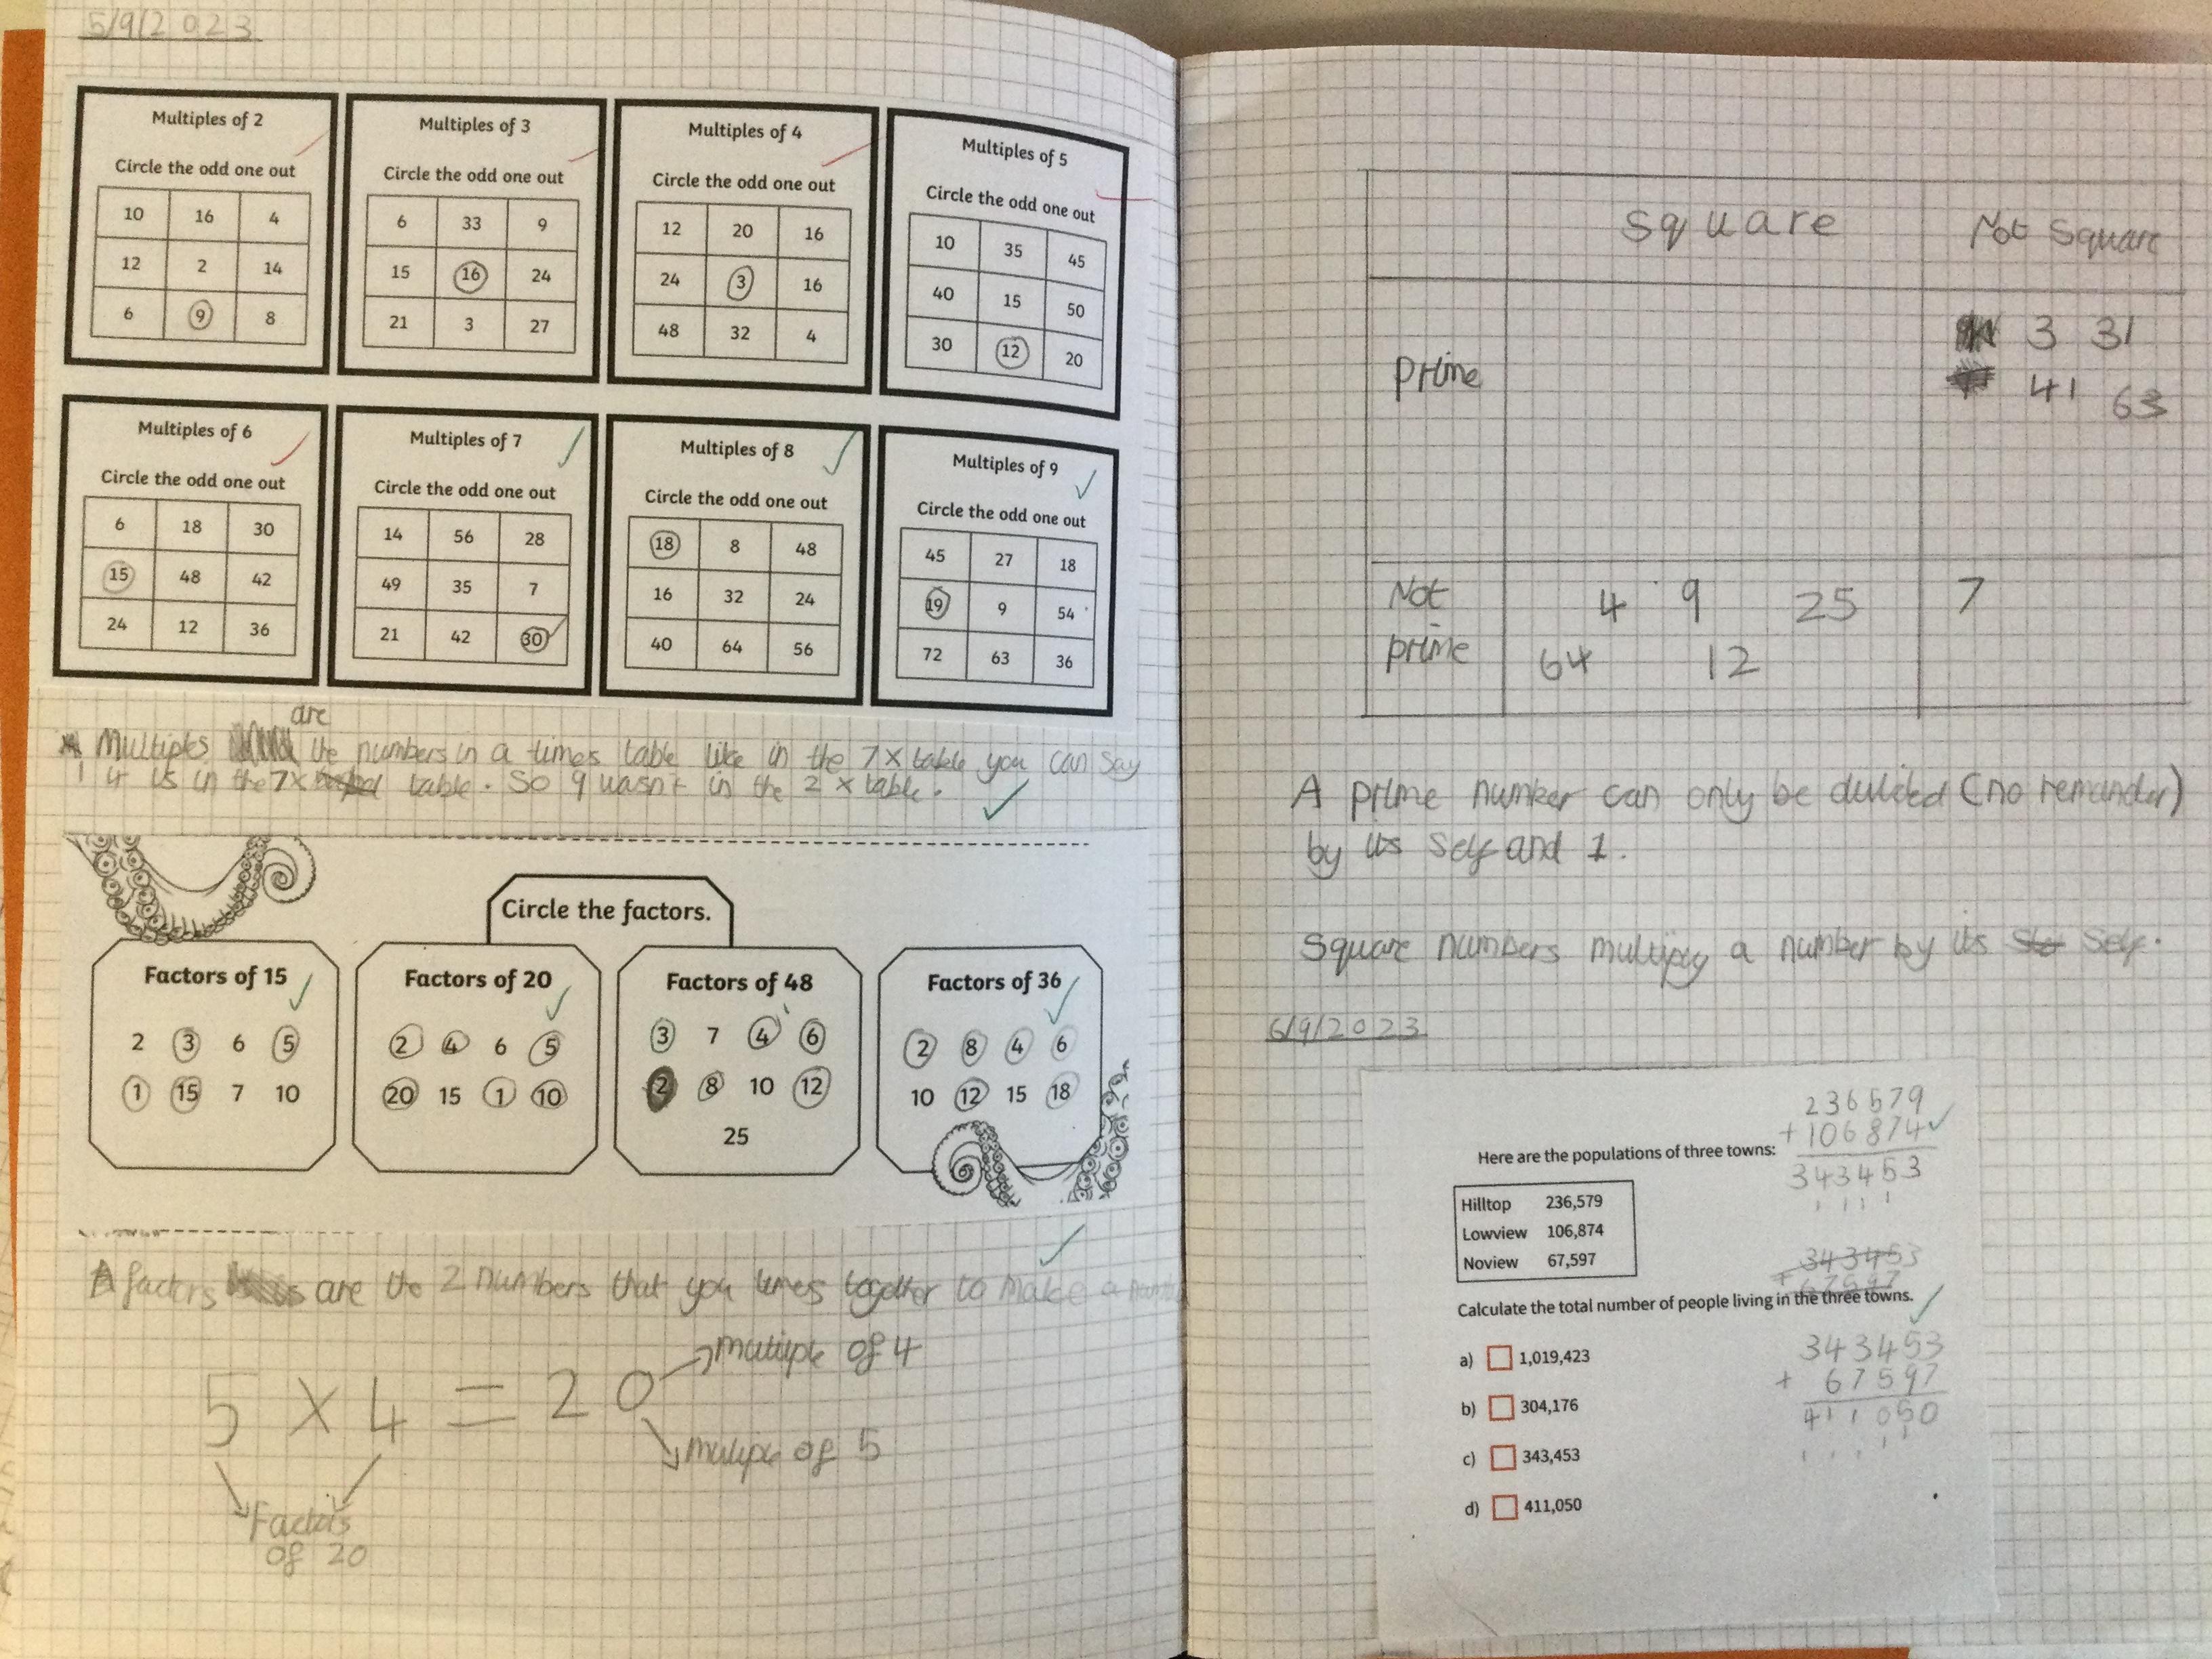 5/9/2023
Multiples of 2
Circle the odd one out
10 16 4
12 2 14
6 9 8
Multiples of 3
Circle the odd one out
6 33 9
15 16 24
21 3 27
Multiples of 4
Circle the odd one out
12 20 16
24 3 16
48 32 4
Multiples of 5
Circle the odd one out
10 35 45
40 15 50
30 12 20
Multiples of 6
Circle the odd one out
6 18 30
15 48 42
24 12 36
Multiples of 7
Circle the odd one out
14 56 28
49 35 7
21 42 30
Multiples of 8
Circle the odd one out
18 8 48
16 32 24
40 64 56
Multiples of 9
Circle the odd one out
45 27 18
19 9 54
72 63 36
are
Multiples the numbers in a times table like in the 7x table you can say
14 is in the 7x table. So 9 wasnt in the 2x table.
Circle the factors.
Factors of 15
2 3 6 5
1 15 7 10
Factors of 20
2 4 6 5
20 15 1 10
Factors of 48
3 7 4 6
2 8 10 12
25
Factors of 36
2 8 4 6
10 12 15 18
factors are the 2 numbers that you times together to make a
5 x 4 = 20
Multiple of 4
Multiple of 5
Factors
of 20
Square Not Square
prime
3 31
41 63
Not
prime
4 9 25
64 12
7
A prime number can only be divided (no remander)
by its self and 1.
Square numbers multiply a number by its self.
6/9/2023
236579
+106874
343453
1 1 1 1
Here are the populations of three towns:
Hilltop 236,579
Lowview 106,874
Noview 67,597
343453
+67597
Calculate the total number of people living in the three towns.
a) 1,019,423
b) 304,176
c) 343,453
d) 411,050
343453
+ 67597
411050